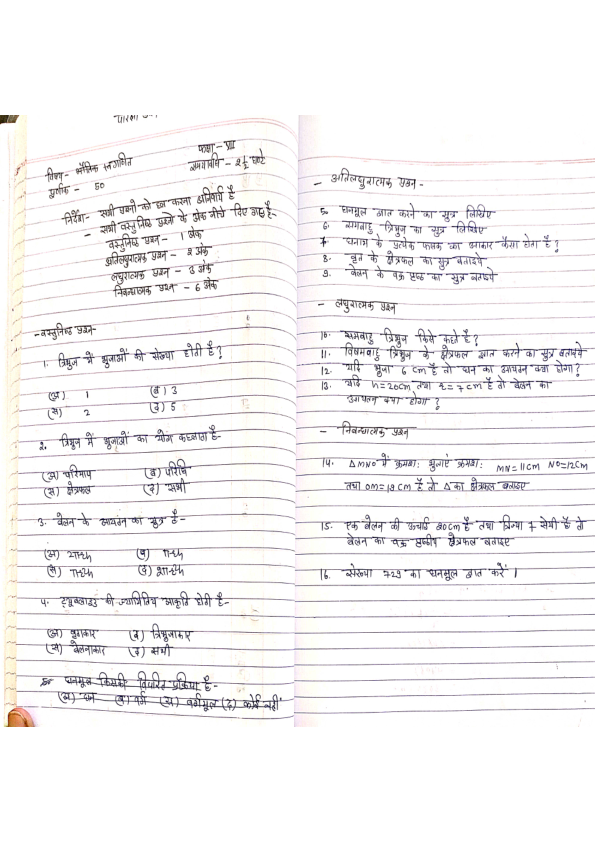 कक्षा - VIII
विषय - वैदिक गणित समयावधि - 2½ घण्टे
पूर्णांक - 50
निर्देश - सभी प्रश्नों को हल करना अनिवार्य है
- सभी वस्तुनिष्ठ प्रश्नों के अंक नीचे दिए गए है-
वस्तुनिष्ठ प्रश्न - 1 अंक
अतिलघुरात्मक प्रश्न - 2 अंक
लघुरात्मक प्रश्न - 3 अंक
निबन्धात्मक प्रश्न - 6 अंक
- वस्तुनिष्ठ प्रश्न-
1. त्रिभुज में भुजाओं की संख्या होती है ?
(अ) 1 (ब) 3
(स) 2 (द) 5
2. त्रिभुज में भुजाओं का योग कहलाता है-
(अ) परिमाप (ब) परिधि
(स) क्षेत्रफल (द) सभी
3. बेलन के आयतन का सूत्र है-
(अ) (ब)
(स) (द)
4. की ज्यामितिय आकृति होती है-
(अ) वृताकार (ब) त्रिभुजाकार
(स) बेलनाकार (द) सभी
5. घनमूल किसकी विपरित प्रक्रिया है-
(अ) घन (ब) वर्ग (स) वर्गमूल (द) कोई नहीं
- अतिलघुरात्मक प्रश्न -
5. घनमूल ज्ञात करने का सूत्र लिखिए
6. समबाहु त्रिभुज का सूत्र लिखिए
7. घनाभ के प्रत्येक फलक का आकार कैसा होता है ?
8. वृत के क्षेत्रफल का सूत्र बताइये
9. बेलन के वक्र पृष्ठ का सूत्र बताइये
- लघुरात्मक प्रश्न
10. समबाहु त्रिभुज किसे कहते है ?
11. विषमबाहु त्रिभुज के क्षेत्रफल ज्ञात करने का सूत्र बताइये
12. यदि भुजा 6 cm है तो घन का आयतन क्या होगा ?
13. यदि h = 20cm तथा r = 7 cm है तो बेलन का
आयतन क्या होगा ?
- निबन्धात्मक प्रश्न
14. Δ MNO में क्रमशः भुजाएं क्रमशः MN = 11cm NO = 12cm
तथा OM = 13cm है तो Δ का क्षेत्रफल बताइए
15. एक बेलन की ऊचाई 20cm है तथा त्रिज्या 7 सेमी है तो
बेलन का वक्र पृष्ठीय क्षेत्रफल बताइए
16. संख्या 729 का घनमूल ज्ञात करें ।